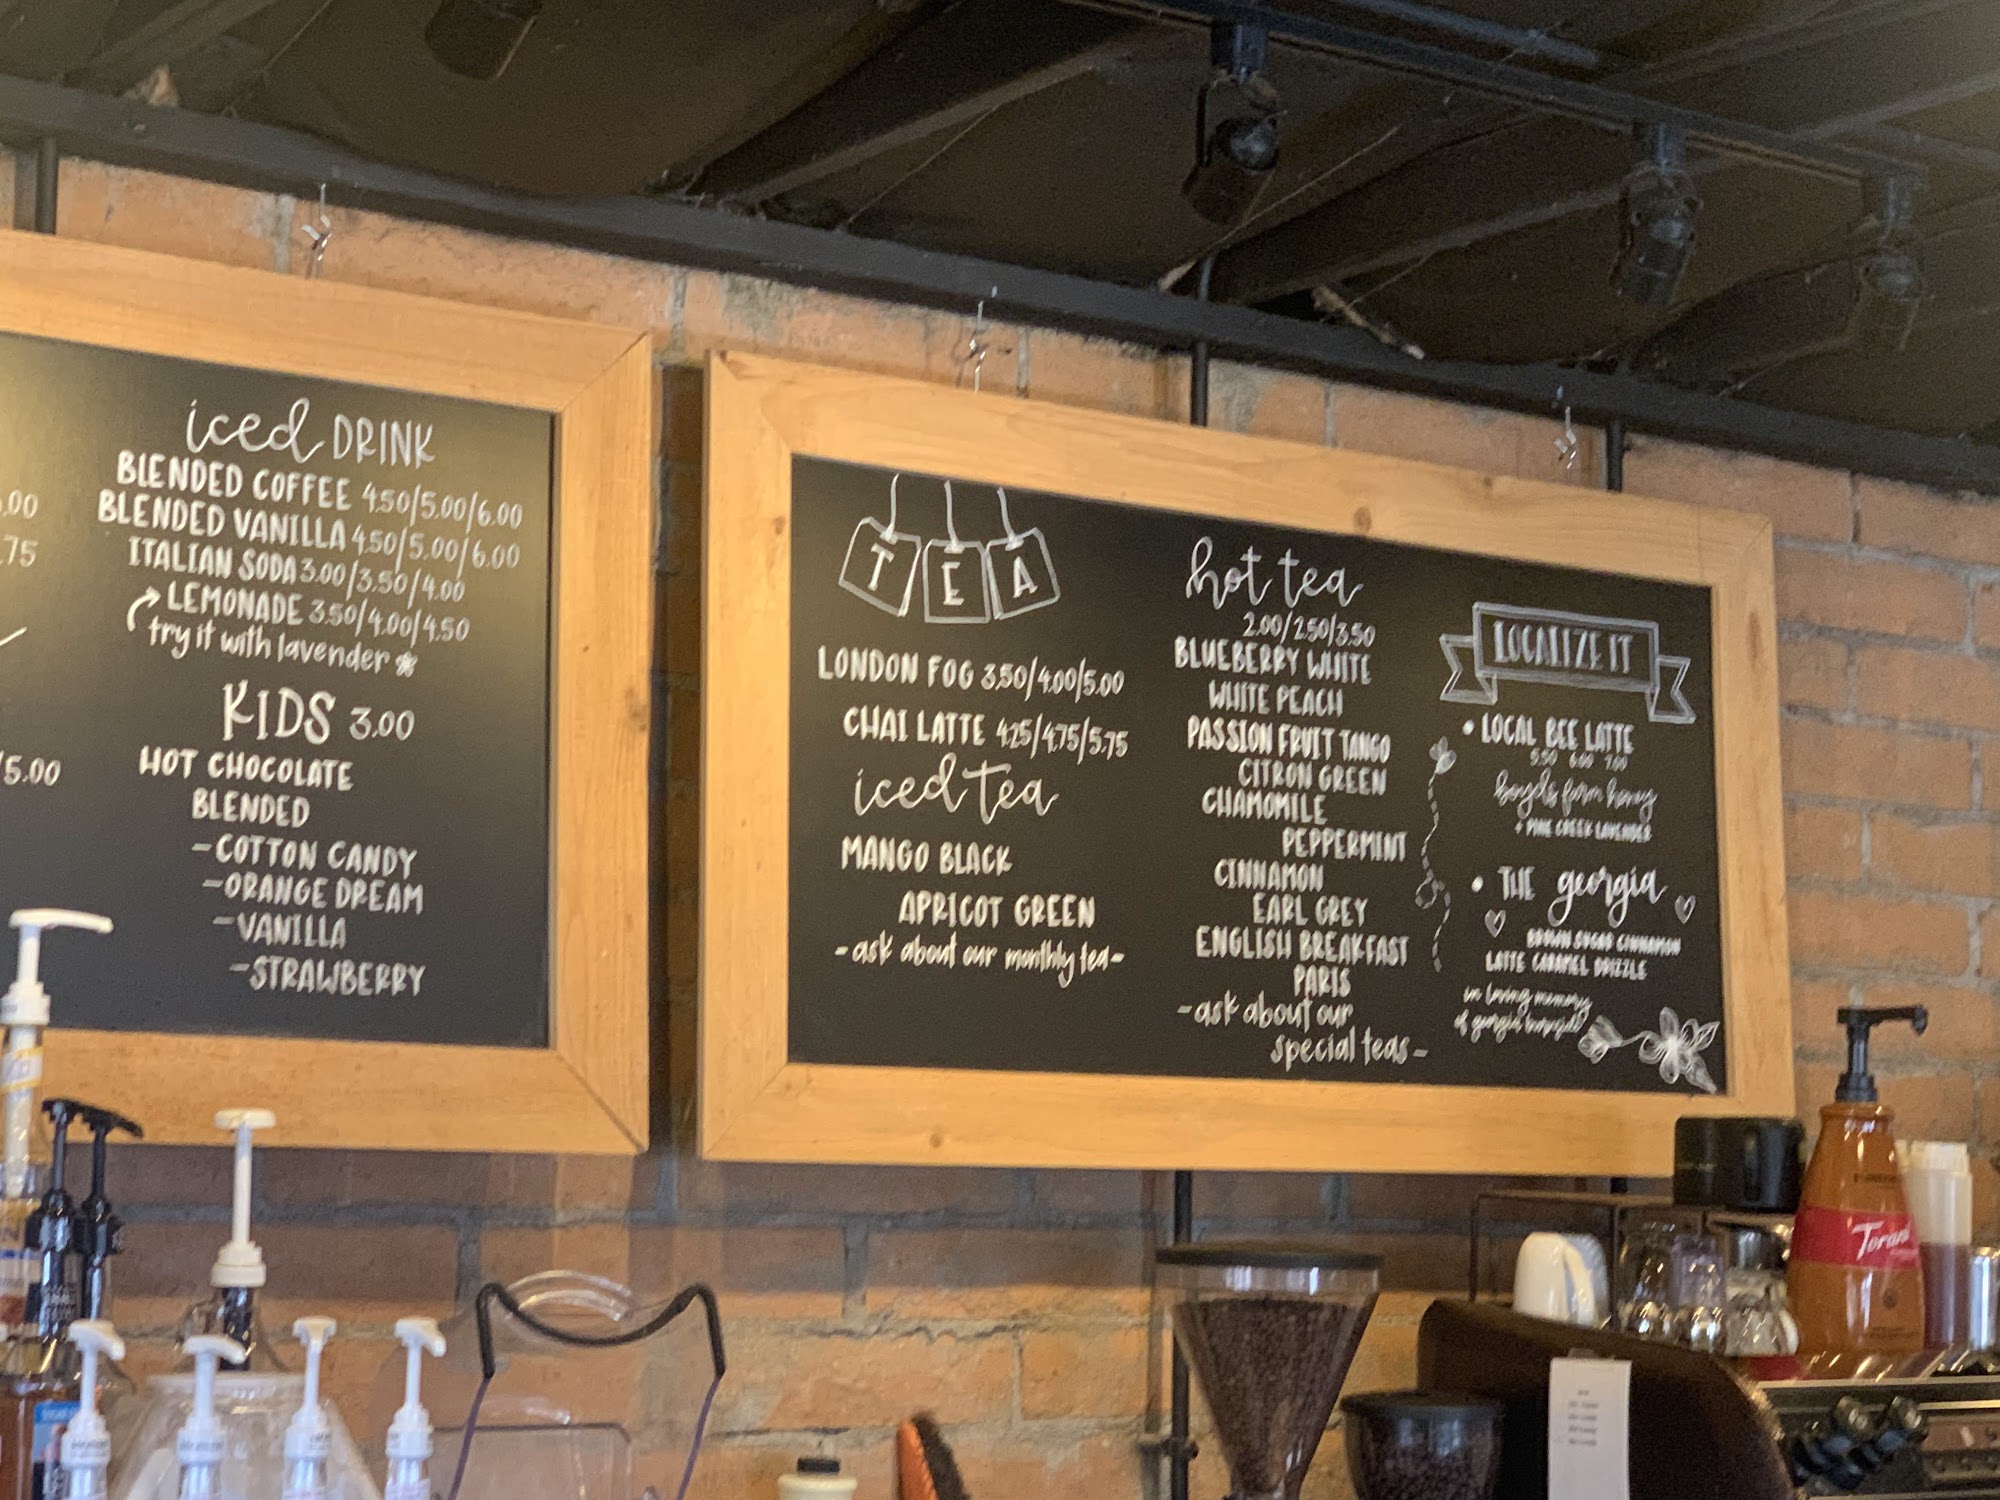 .00
.75
/5.00
iced DRINK
BLENDED COFFEE 4.50/5.00/6.00
BLENDED VANILLA 4.50/5.00/6.00
ITALIAN SODA 3.00/3.50/4.00
LEMONADE 3.50/4.00/4.50
try it with lavender
KIDS 3.00
HOT CHOCOLATE
BLENDED
-COTTON CANDY
-ORANGE DREAM
-VANILLA
-STRAWBERRY
TEA
LONDON FOG 3.50/4.00/5.00
CHAI LATTE 4.25/4.75/5.75
iced tea
MANGO BLACK
APRICOT GREEN
-ask about our monthly tea-
hot tea
2.00/2.50/3.50
BLUEBERRY WHITE
WHITE PEACH
PASSION FRUIT TANGO
CITRON GREEN
CHAMOMILE
PEPPERMINT
CINNAMON
EARL GREY
ENGLISH BREAKFAST
PARIS
-ask about our
special teas-
LOCALIZE IT
• LOCAL BEE LATTE
5.50 6.00 7.00
boyds farm honey
+ PINE CREEK LAVENDER
• THE georgia
BROWN SUGAR CINNAMON
LATTE CARAMEL DRIZZLE
in loving memory
of georgia
Torani